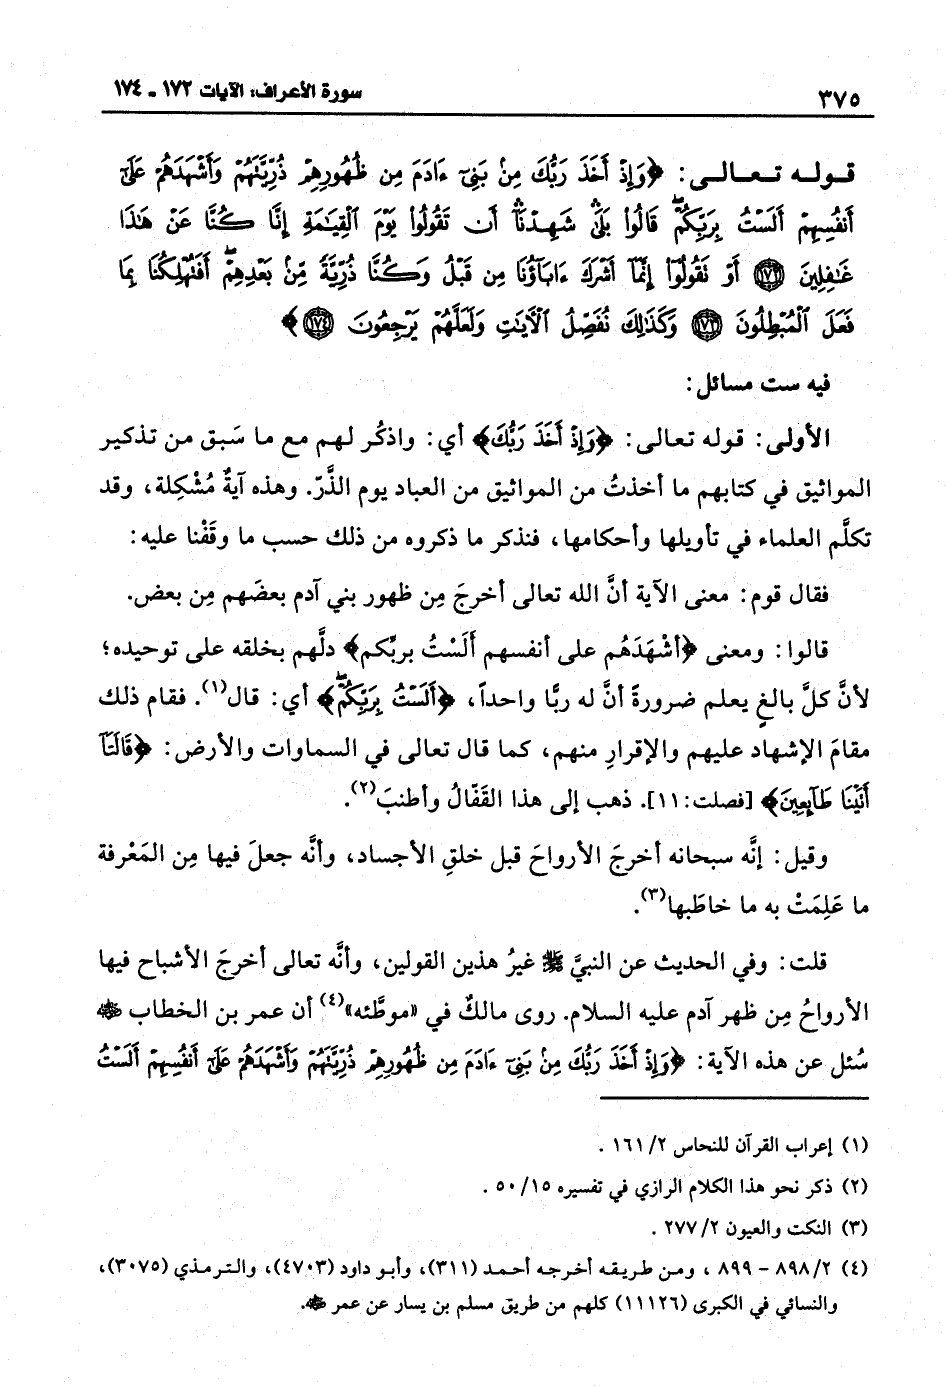 ٣٧٥ سورة الأعراف: الآيات ١٧٢ - ١٧٤
قوله تعالى: ﴿وَإِذْ أَخَذَ رَبُّكَ مِنۢ بَنِىٓ ءَادَمَ مِن ظُهُورِهِمْ ذُرِّيَّتَهُمْ وَأَشْهَدَهُمْ عَلَىٰٓ
أَنفُسِهِمْ أَلَسْتُ بِرَبِّكُمْ ۖ قَالُوا۟ بَلَىٰ ۛ شَهِدْنَآ ۛ أَن تَقُولُوا۟ يَوْمَ ٱلْقِيَـٰمَةِ إِنَّا كُنَّا عَنْ هَـٰذَا
غَـٰفِلِينَ ﴿١٧٢﴾ أَوْ تَقُولُوٓا۟ إِنَّمَآ أَشْرَكَ ءَابَآؤُنَا مِن قَبْلُ وَكُنَّا ذُرِّيَّةً مِّنۢ بَعْدِهِمْ ۖ أَفَتُهْلِكُنَا بِمَا
فَعَلَ ٱلْمُبْطِلُونَ ﴿١٧٣﴾ وَكَذَٰلِكَ نُفَصِّلُ ٱلْـَٔايَـٰتِ وَلَعَلَّهُمْ يَرْجِعُونَ ﴿١٧٤﴾﴾
فيه ست مسائل:
الأولى: قوله تعالى: ﴿وَإِذْ أَخَذَ رَبُّكَ﴾ أي: واذكُر لهم مع ما سَبق من تذكير
المواثيق في كتابهم ما أخذتُ من المواثيق من العباد يوم الذَّرّ. وهذه آيةٌ مُشْكِلة، وقد
تكلَّم العلماء في تأويلها وأحكامها، فنذكر ما ذكروه من ذلك حسب ما وقَفْنا عليه:
فقال قوم: معنى الآية أنَّ الله تعالى أخرجَ مِن ظهور بني آدم بعضَهم مِن بعض.
قالوا: ومعنى ﴿أشْهَدَهُم على أنفسهم أَلَسْتُ بربِّكم﴾ دلَّهم بخلقه على توحيده؛
لأنَّ كلَّ بالغٍ يعلم ضرورةً أنَّ له ربًّا واحداً، ﴿أَلَسْتُ بِرَبِّكُمْ ۖ﴾ أي: قال(١). فقام ذلك
مقامَ الإشهاد عليهم والإقرارِ منهم، كما قال تعالى في السماوات والأرض: ﴿قَالَتَآ
أَتَيْنَا طَآئِعِينَ﴾ [فصلت: ١١]. ذهب إلى هذا القَفّالُ وأطنبَ(٢).
وقيل: إنَّه سبحانه أخرجَ الأرواحَ قبل خلقِ الأجساد، وأنَّه جعلَ فيها مِن المَعْرفة
ما عَلِمَتْ به ما خاطَبها(٣).
قلت: وفي الحديث عن النبيَّ ﷺ غيرُ هذين القولين، وأنَّه تعالى أخرجَ الأشباح فيها
الأرواحُ مِن ظهر آدم عليه السلام. روى مالكٌ في «موطَّئه»(٤) أن عمر بن الخطاب ﷺ
سُئل عن هذه الآية: ﴿وَإِذْ أَخَذَ رَبُّكَ مِنۢ بَنِىٓ ءَادَمَ مِن ظُهُورِهِمْ ذُرِّيَّتَهُمْ وَأَشْهَدَهُمْ عَلَىٰٓ أَنفُسِهِمْ أَلَسْتُ
(١) إعراب القرآن للنحاس ٢/ ١٦١ .
(٢) ذكر نحو هذا الكلام الرازي في تفسيره ١٥/ ٥٠ .
(٣) النكت والعيون ٢/ ٢٧٧ .
(٤) ٢/ ٨٩٨ - ٨٩٩ ، ومن طريقه أخرجه أحمد (٣١١)، وأبو داود (٤٧٠٣)، والترمذي (٣٠٧٥)،
والنسائي في الكبرى (١١١٢٦) كلهم من طريق مسلم بن يسار عن عمر ﷺ.